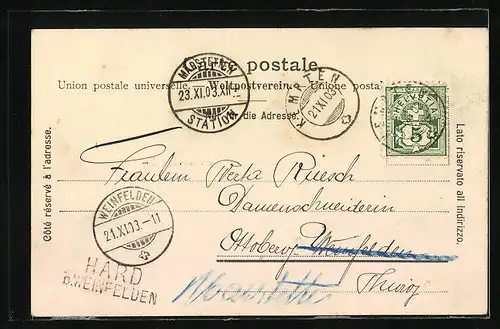 postale.
Union postale universelle. — Weltpostverein. — Unione posta
die Adresse.
MÄRSTETTEN
23.XI.03.XII
STATION
KEMPTEN
21.XI.03
HELVETIA
5
Fräulein Berta Ruesch
Damenschneiderin
Ottoberg Weinfelden
Thurg
WEINFELDEN
21.XI.03.-11
HARD
b.WEINFELDEN
Côté réservé à l'adresse.
Lato riservato all indirizzo.